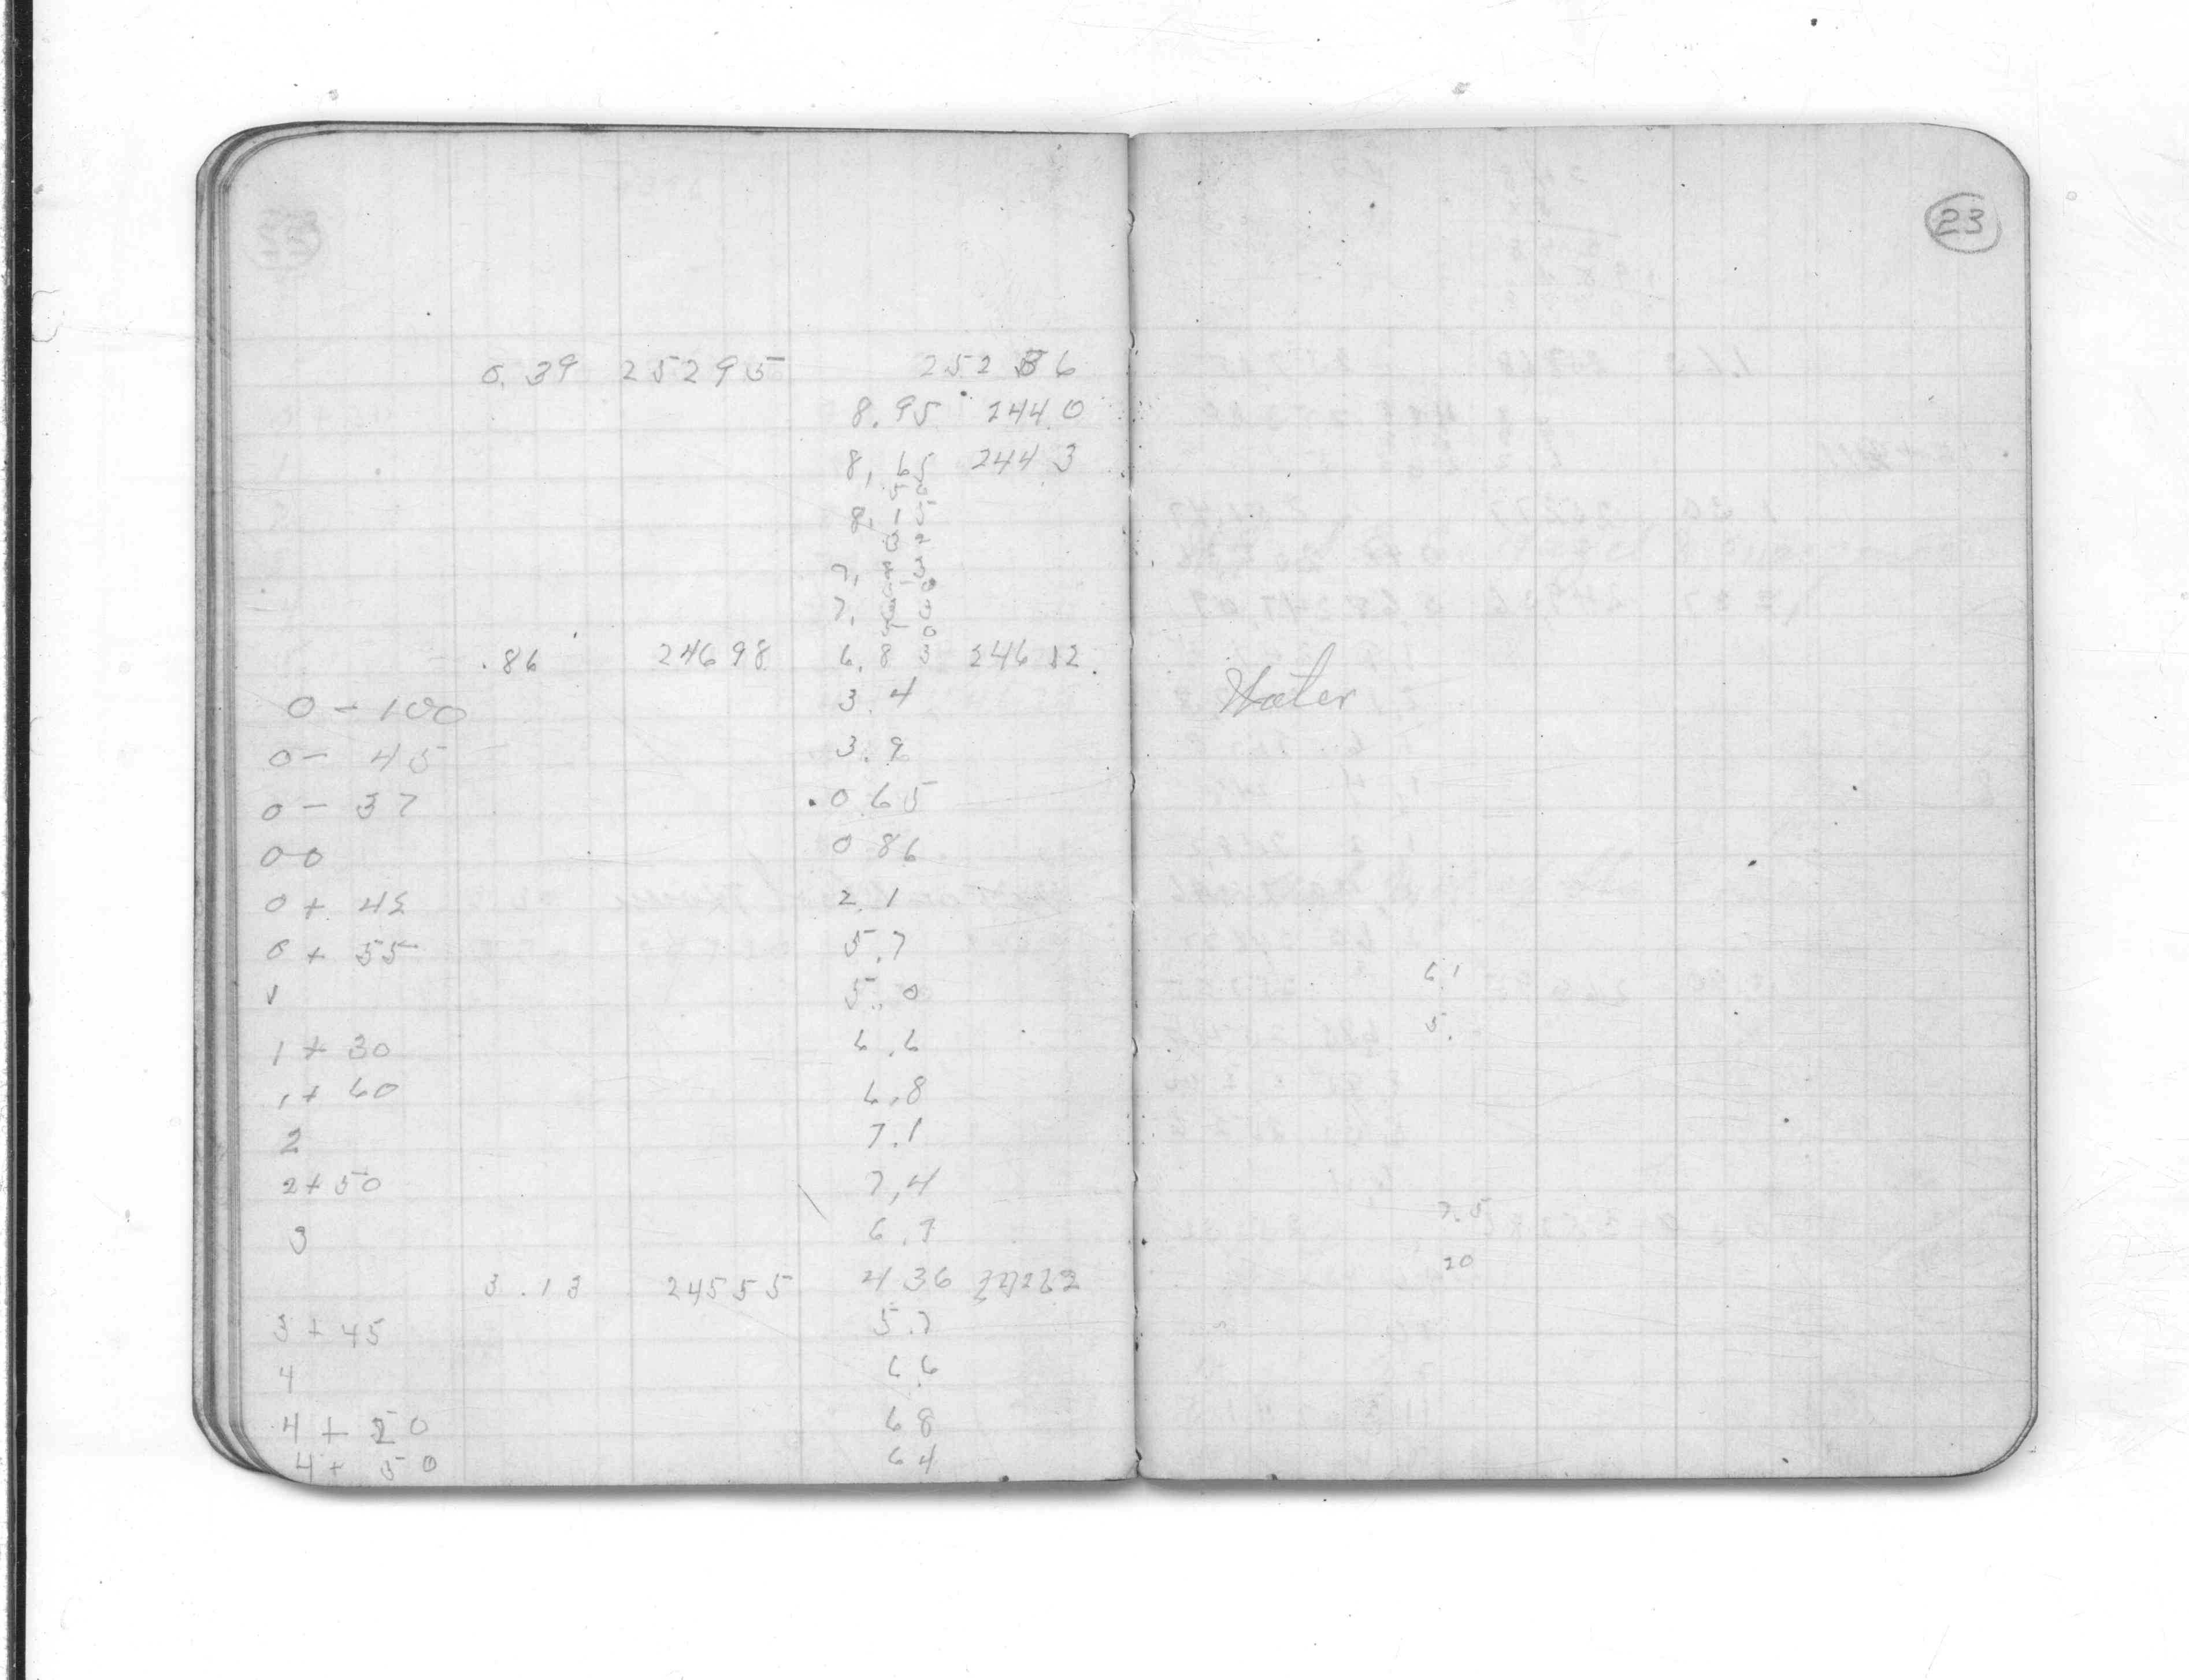 0.39 25295 252 56
8.95 244.0
8.65 244 3
8.
7.
7.
.86 24698 6.83 24612.
0-100 3.4
0- 45 3.9
0-37 .065
00 086
0+ 45 2.1
0+ 55 5.7
1 5.0
1+30 6.6
1+60 6.8
2 7.1
2+50 7.4
3 6.7
3.13 24555 4 36
3+45 5.7
4 6.6
4+20 68
4+50 64
23
Water
6.1
5.
7.5
20